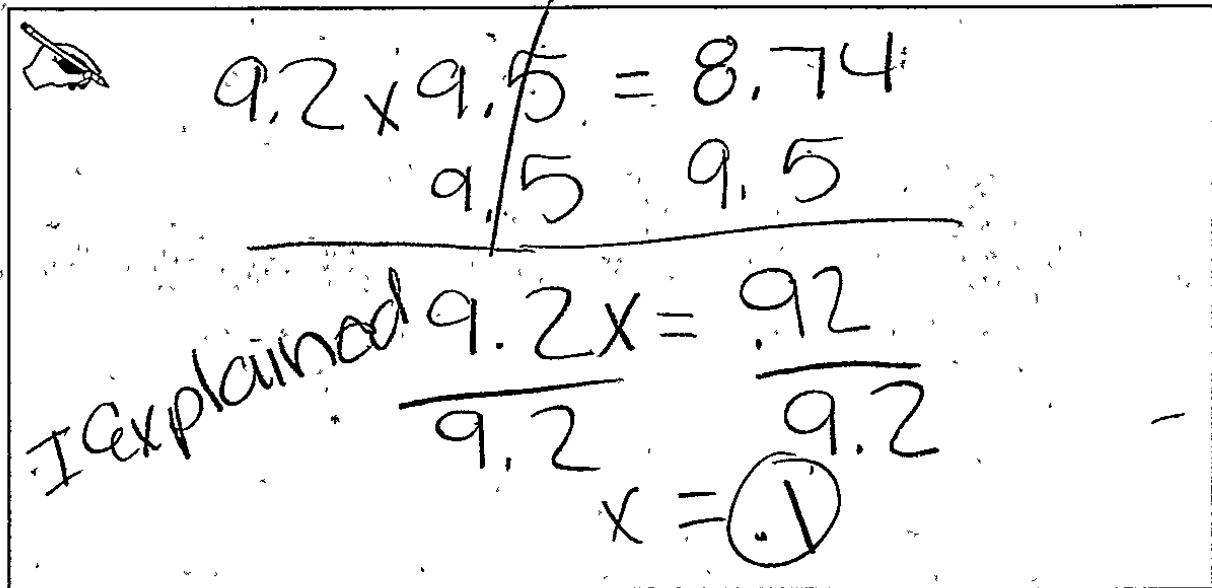 9.2x9.5 = 8.74
9.5 9.5
I explained 9.2x = .92
9.2 9.2
x = .1